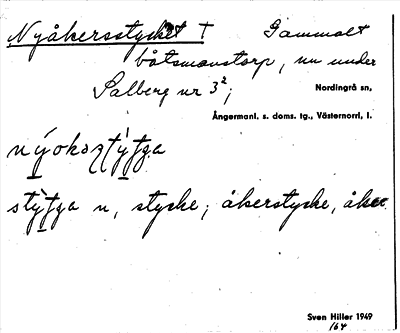 Nyåkersstycket † Gammalt
båtsmanstorp, nu under
Salberg nr 3²;
Nordingrå sn,
Ångermanl. s. doms. tg., Västernorrl. l.
stycke; åkerstycke, åker
Sven Hiller 1949
164